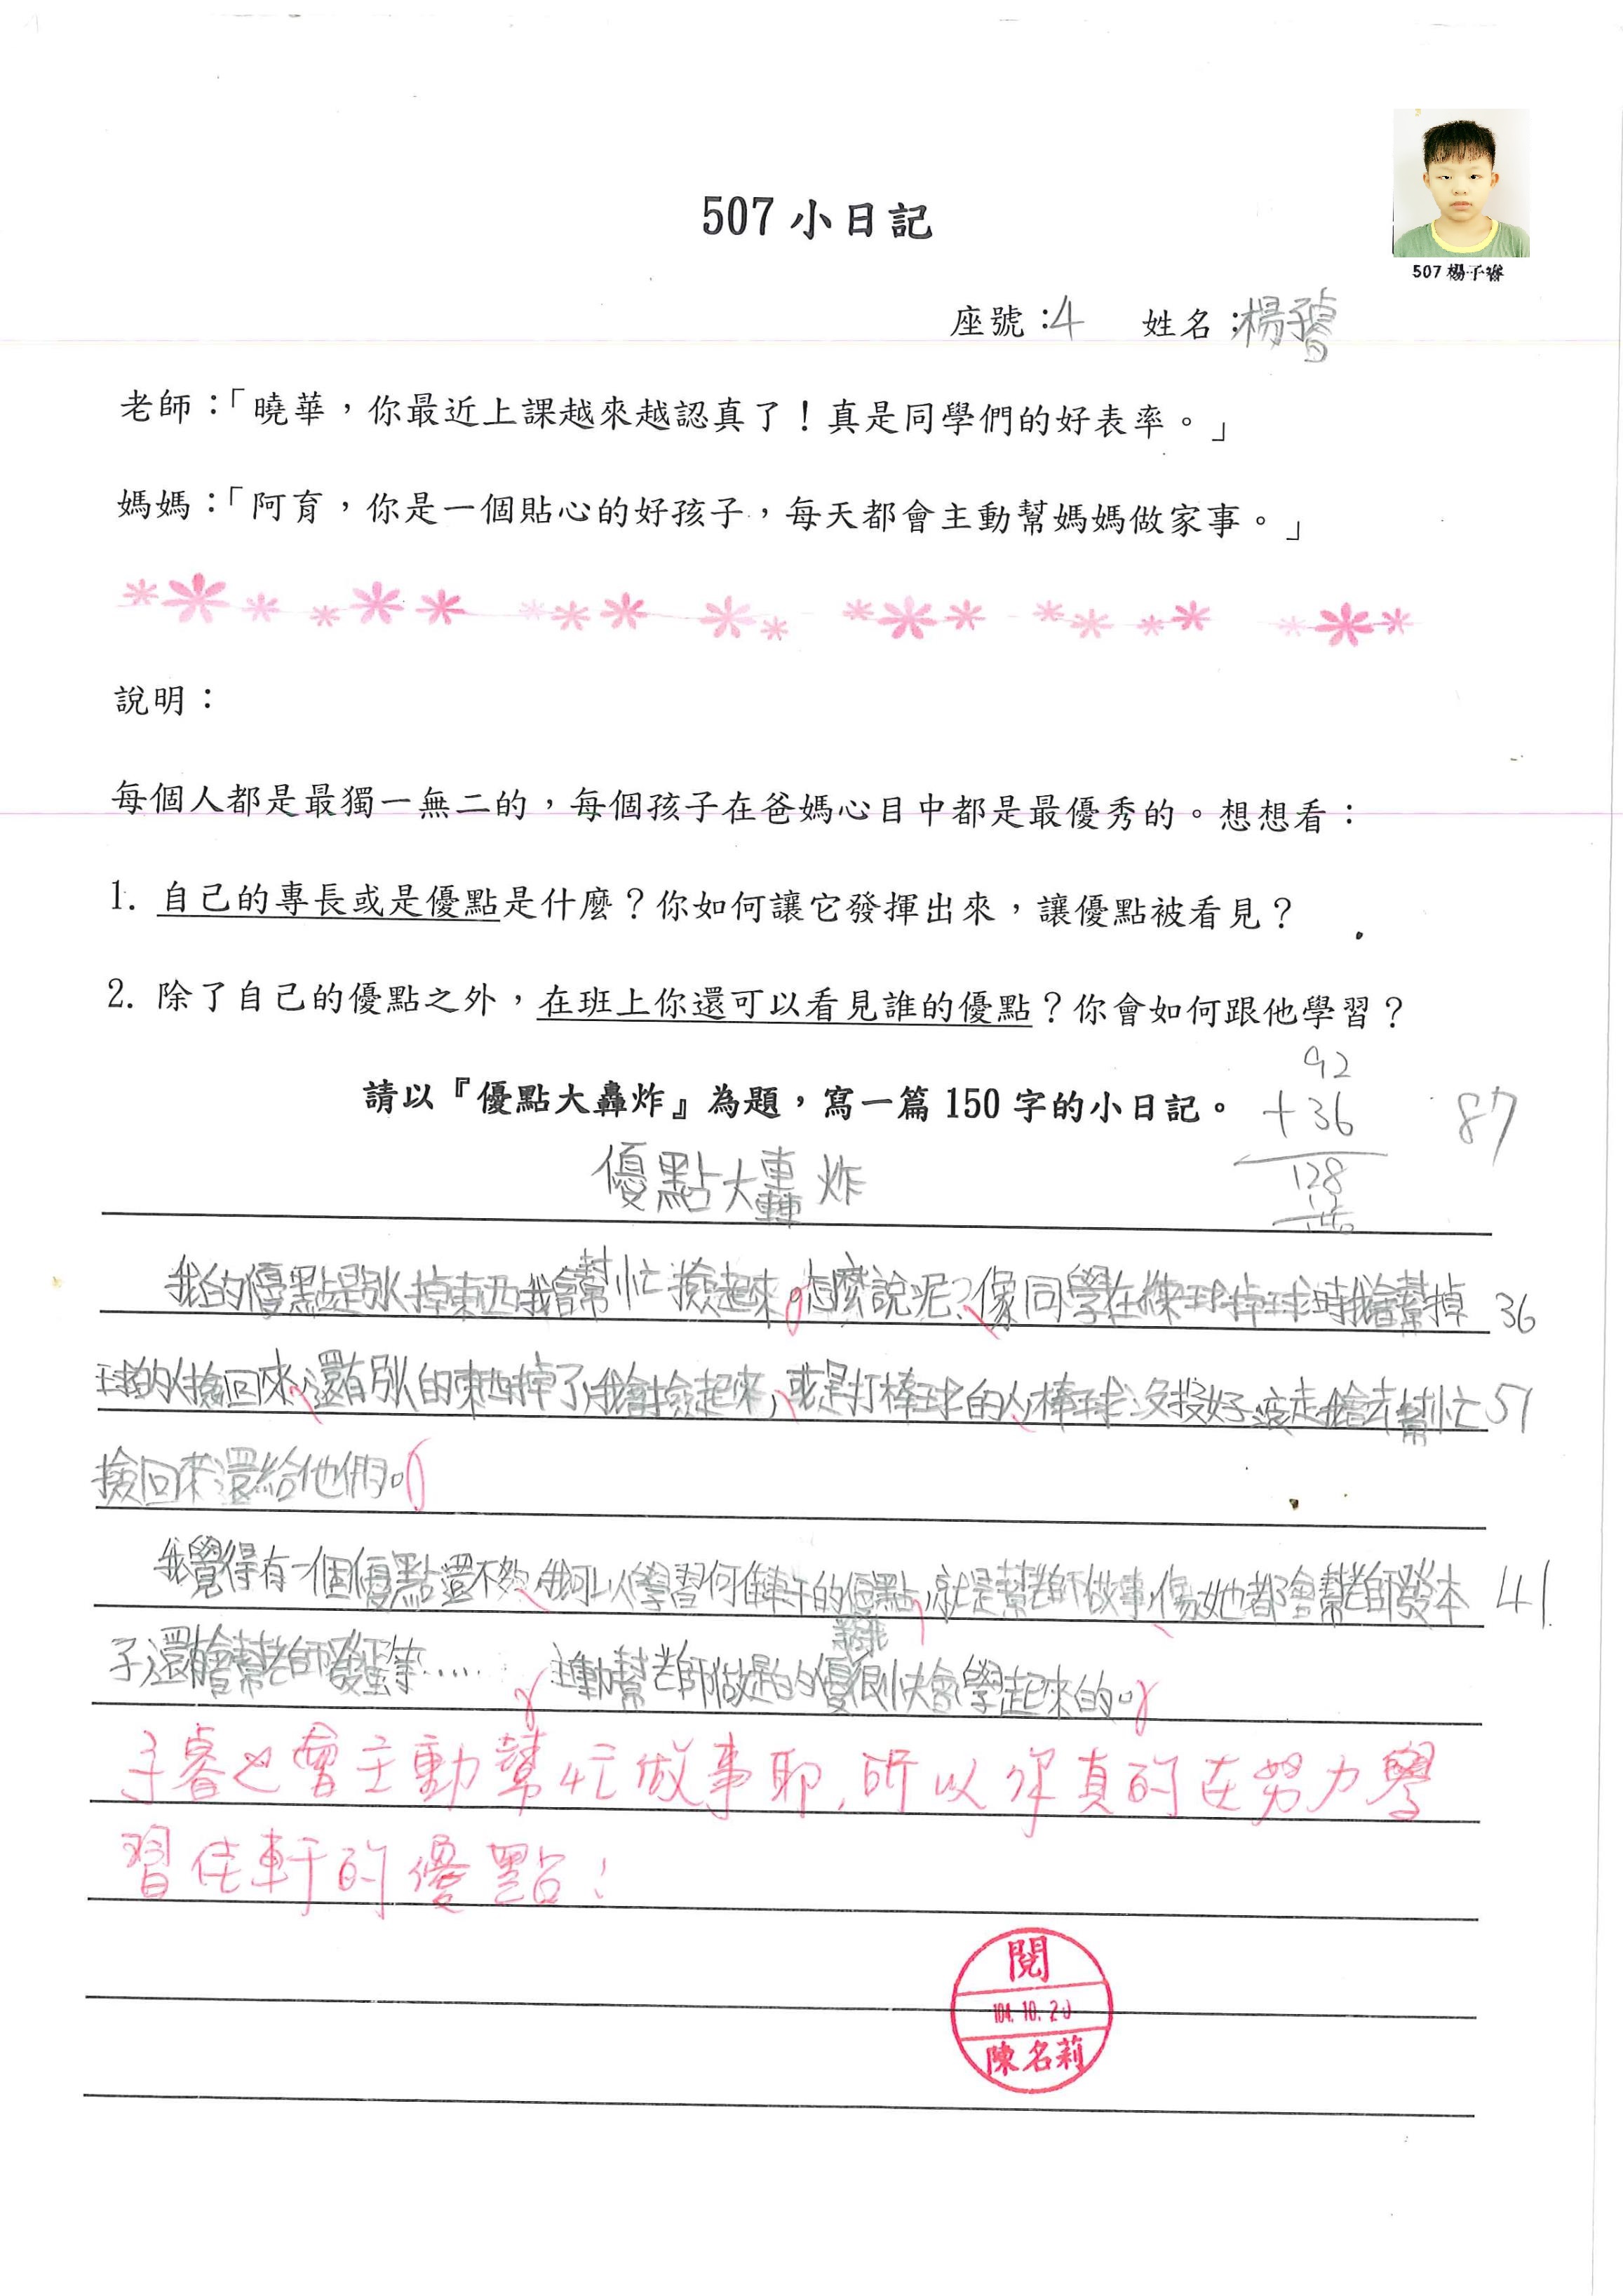 507 楊子睿
507 小日記
座號：4 姓名：楊子睿
老師：「曉華，你最近上課越來越認真了！真是同學們的好表率。」
媽媽：「阿育，你是一個貼心的好孩子，每天都會主動幫媽媽做家事。」
說明：
每個人都是最獨一無二的，每個孩子在爸媽心目中都是最優秀的。想想看：
1. 自己的專長或是優點是什麼？你如何讓它發揮出來，讓優點被看見？
2. 除了自己的優點之外，在班上你還可以看見誰的優點？你會如何跟他學習？
92
請以『優點大轟炸』為題，寫一篇 150 字的小日記。 +36 87
128
優點大轟炸
我的優點是別人掉東西我會幫忙撿起來。怎麼說呢？像同學在練球掉球時我會幫掉 36
球的人撿回來，還有別人的東西掉了，我會撿起來，或是打棒球的人，棒球沒投好，滾走我會去幫忙 51
撿回來還給他們。
我覺得有一個優點還不夠，我可以學習何佳軒的優點，就是幫老師做事，像她都會幫老師發本 41
子，還會幫老師發蛋等…… 主動幫老師做是的優很快會學起來的。
子睿也會主動幫忙做事耶，所以你真的在努力學
習佳軒的優點！
閱
104.10.20
陳名莉